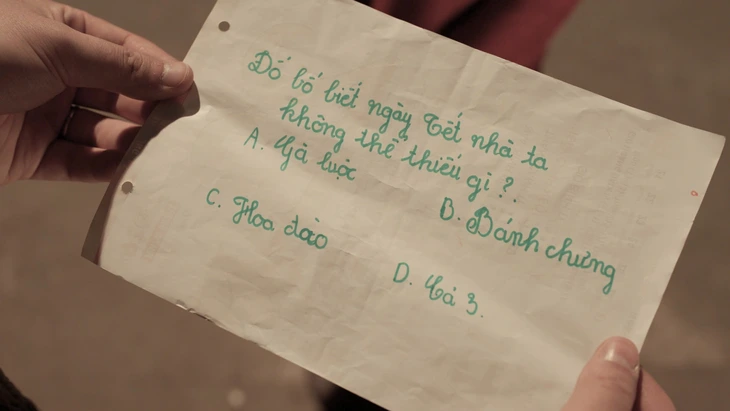 Đố bố biết ngày Tết nhà ta
không thể thiếu gì ?
A. Gà luộc
B. Bánh chưng
C. Hoa đào
D. Cả 3.